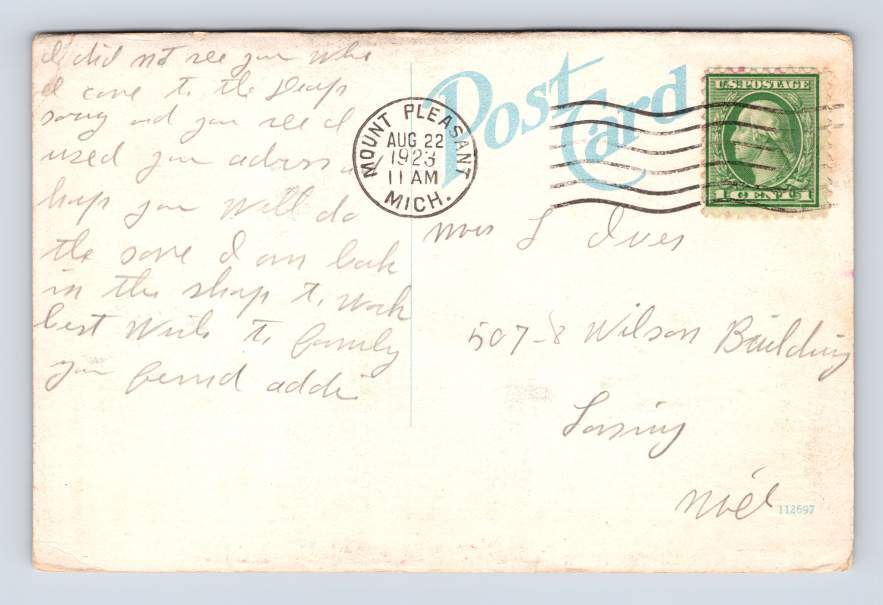 I did not see you whe
I come to the Shop
sorry and you see I
used you adress
hop you Will do
the same I am back
in the shop to work
best Wish to family
you frend addi
Post Card
MOUNT PLEASANT
AUG 22
1923
11 AM
MICH.
U.S. POSTAGE
1 CENT 1
Mrs L Ives
507-8 Wilson Building
Lansing
Mich
112697